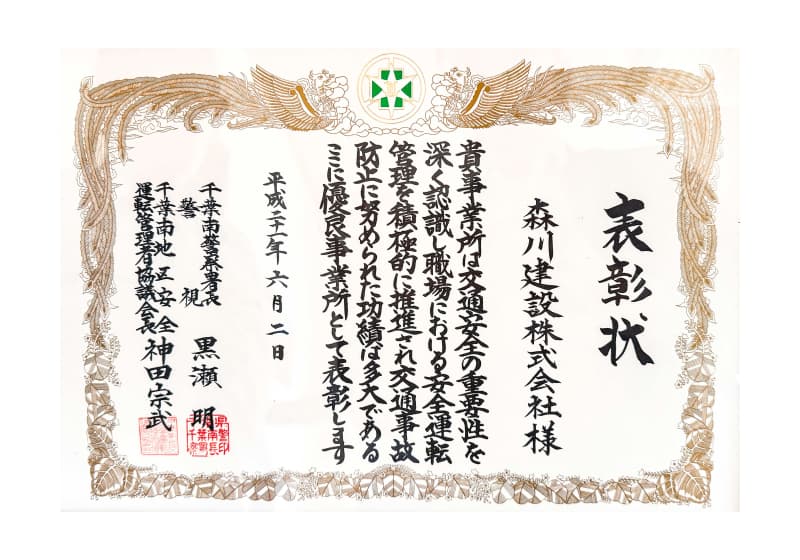 表彰状
森川建設株式会社様
貴事業所は交通安全の重要性を
深く認識し職場における安全運転
管理を積極的に推進され交通事故
防止に努められた功績は多大である
ここに優良事業所として表彰します
平成二十一年六月二日
千葉南警察署長
警視 黒瀬 明
千葉南地区安全
運転管理者協議会長 神田宗武